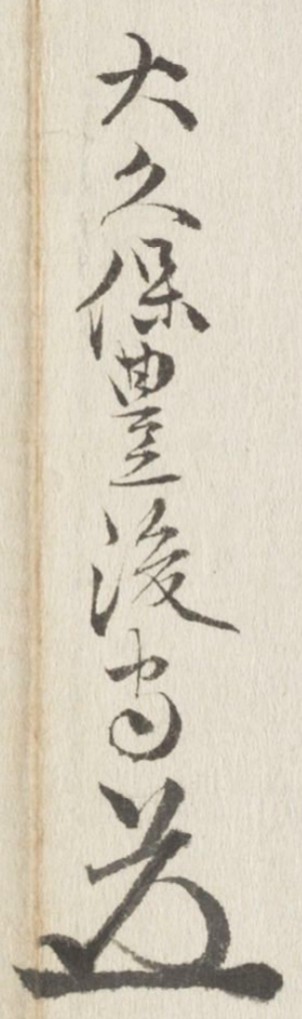 大久保豊後守